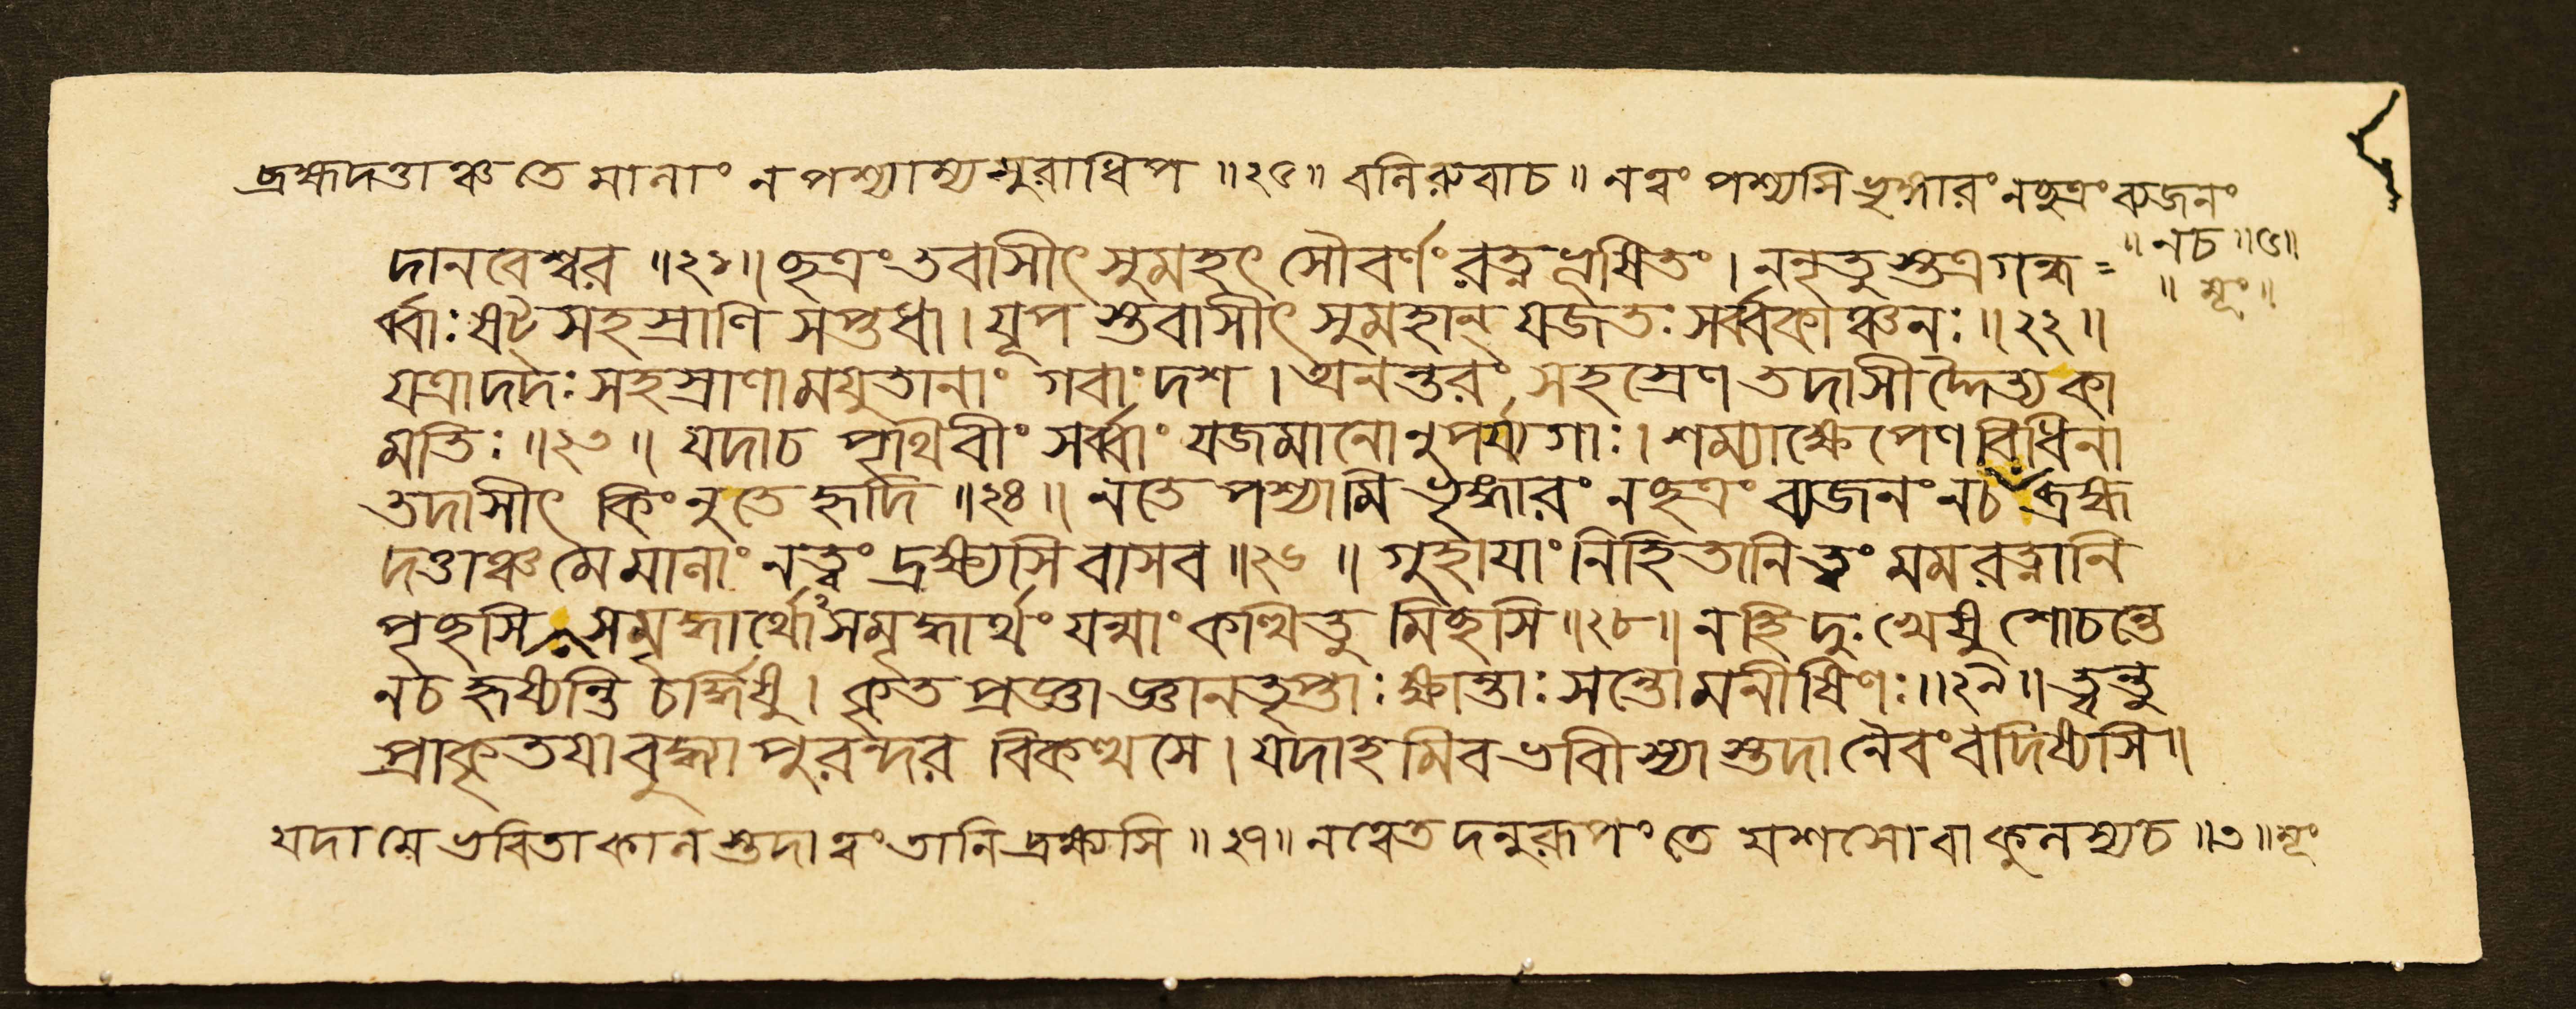 ব্রহ্মদত্তাঞ্চতে মানাং ন পশ্যাম্যসুরাধিপ ॥২৫॥ বলিরুবাচ॥ নত্বং পশ্যসিভৃঙ্গারং নছত্রং ব্যজনং
॥নচ॥৫॥
॥ মূং॥
দানবেশ্বর ॥২১॥ ছত্রং তবাসীৎ সুমহৎ সৌবর্ণং রত্নভূষিতং। ননৃতুস্তত্রগন্ধ=
র্ব্বাঃ ষট্ সহস্রাণি সপ্তধা। যূপ স্তবাসীৎ সুমহান্ যজতঃ সর্ব্বকাঞ্চনঃ॥২২॥
যত্রাদদঃ সহস্রাণামযুতানাং গবাং দশ। অনন্তরং সহস্রেণ তদাসীদ্দৈত্য কা
মতিঃ॥২৩॥ যদাচ পৃথিবীং সর্ব্বাং যজমানোনুপর্য্যগাঃ। শম্যাক্ষেপেণ বিধিনা
তদাসীৎ কিংনুতে হৃদি॥২৪॥ নতে পশ্যামি ভৃঙ্গারং নছত্রং ব্যজনং নচ ব্রহ্ম
দত্তাঞ্চমেমানাং নত্বং দ্রক্ষ্যসি বাসব॥২৬॥ গুহায়াং নিহিতানি ত্বং মমরত্নানি
পৃছসি সমৃদ্ধার্থোঽসমৃদ্ধার্থং যন্মাং কত্থিতু মিছসি॥২৮॥ নহি দুঃখেষু শোচন্তে
নচ হৃষ্যন্তি চর্দ্ধিষু। কৃত প্রজ্ঞা জ্ঞানতৃপ্তাঃ ক্ষান্তাঃ সন্তোমনীষিণঃ॥২৯॥ ত্বন্তু
প্রাকৃতয়াবুদ্ধ্যা পুরন্দর বিকত্থসে। যদাহমিবভাবীস্যাস্তদানৈবংবদিষ্যসি॥
যদামেভবিতাকালস্তদাত্বংতানিদ্রক্ষ্যসি॥২৭॥ নত্বেতদনুরূপং তে যশসোবাকুলস্যচ॥৩॥মূং